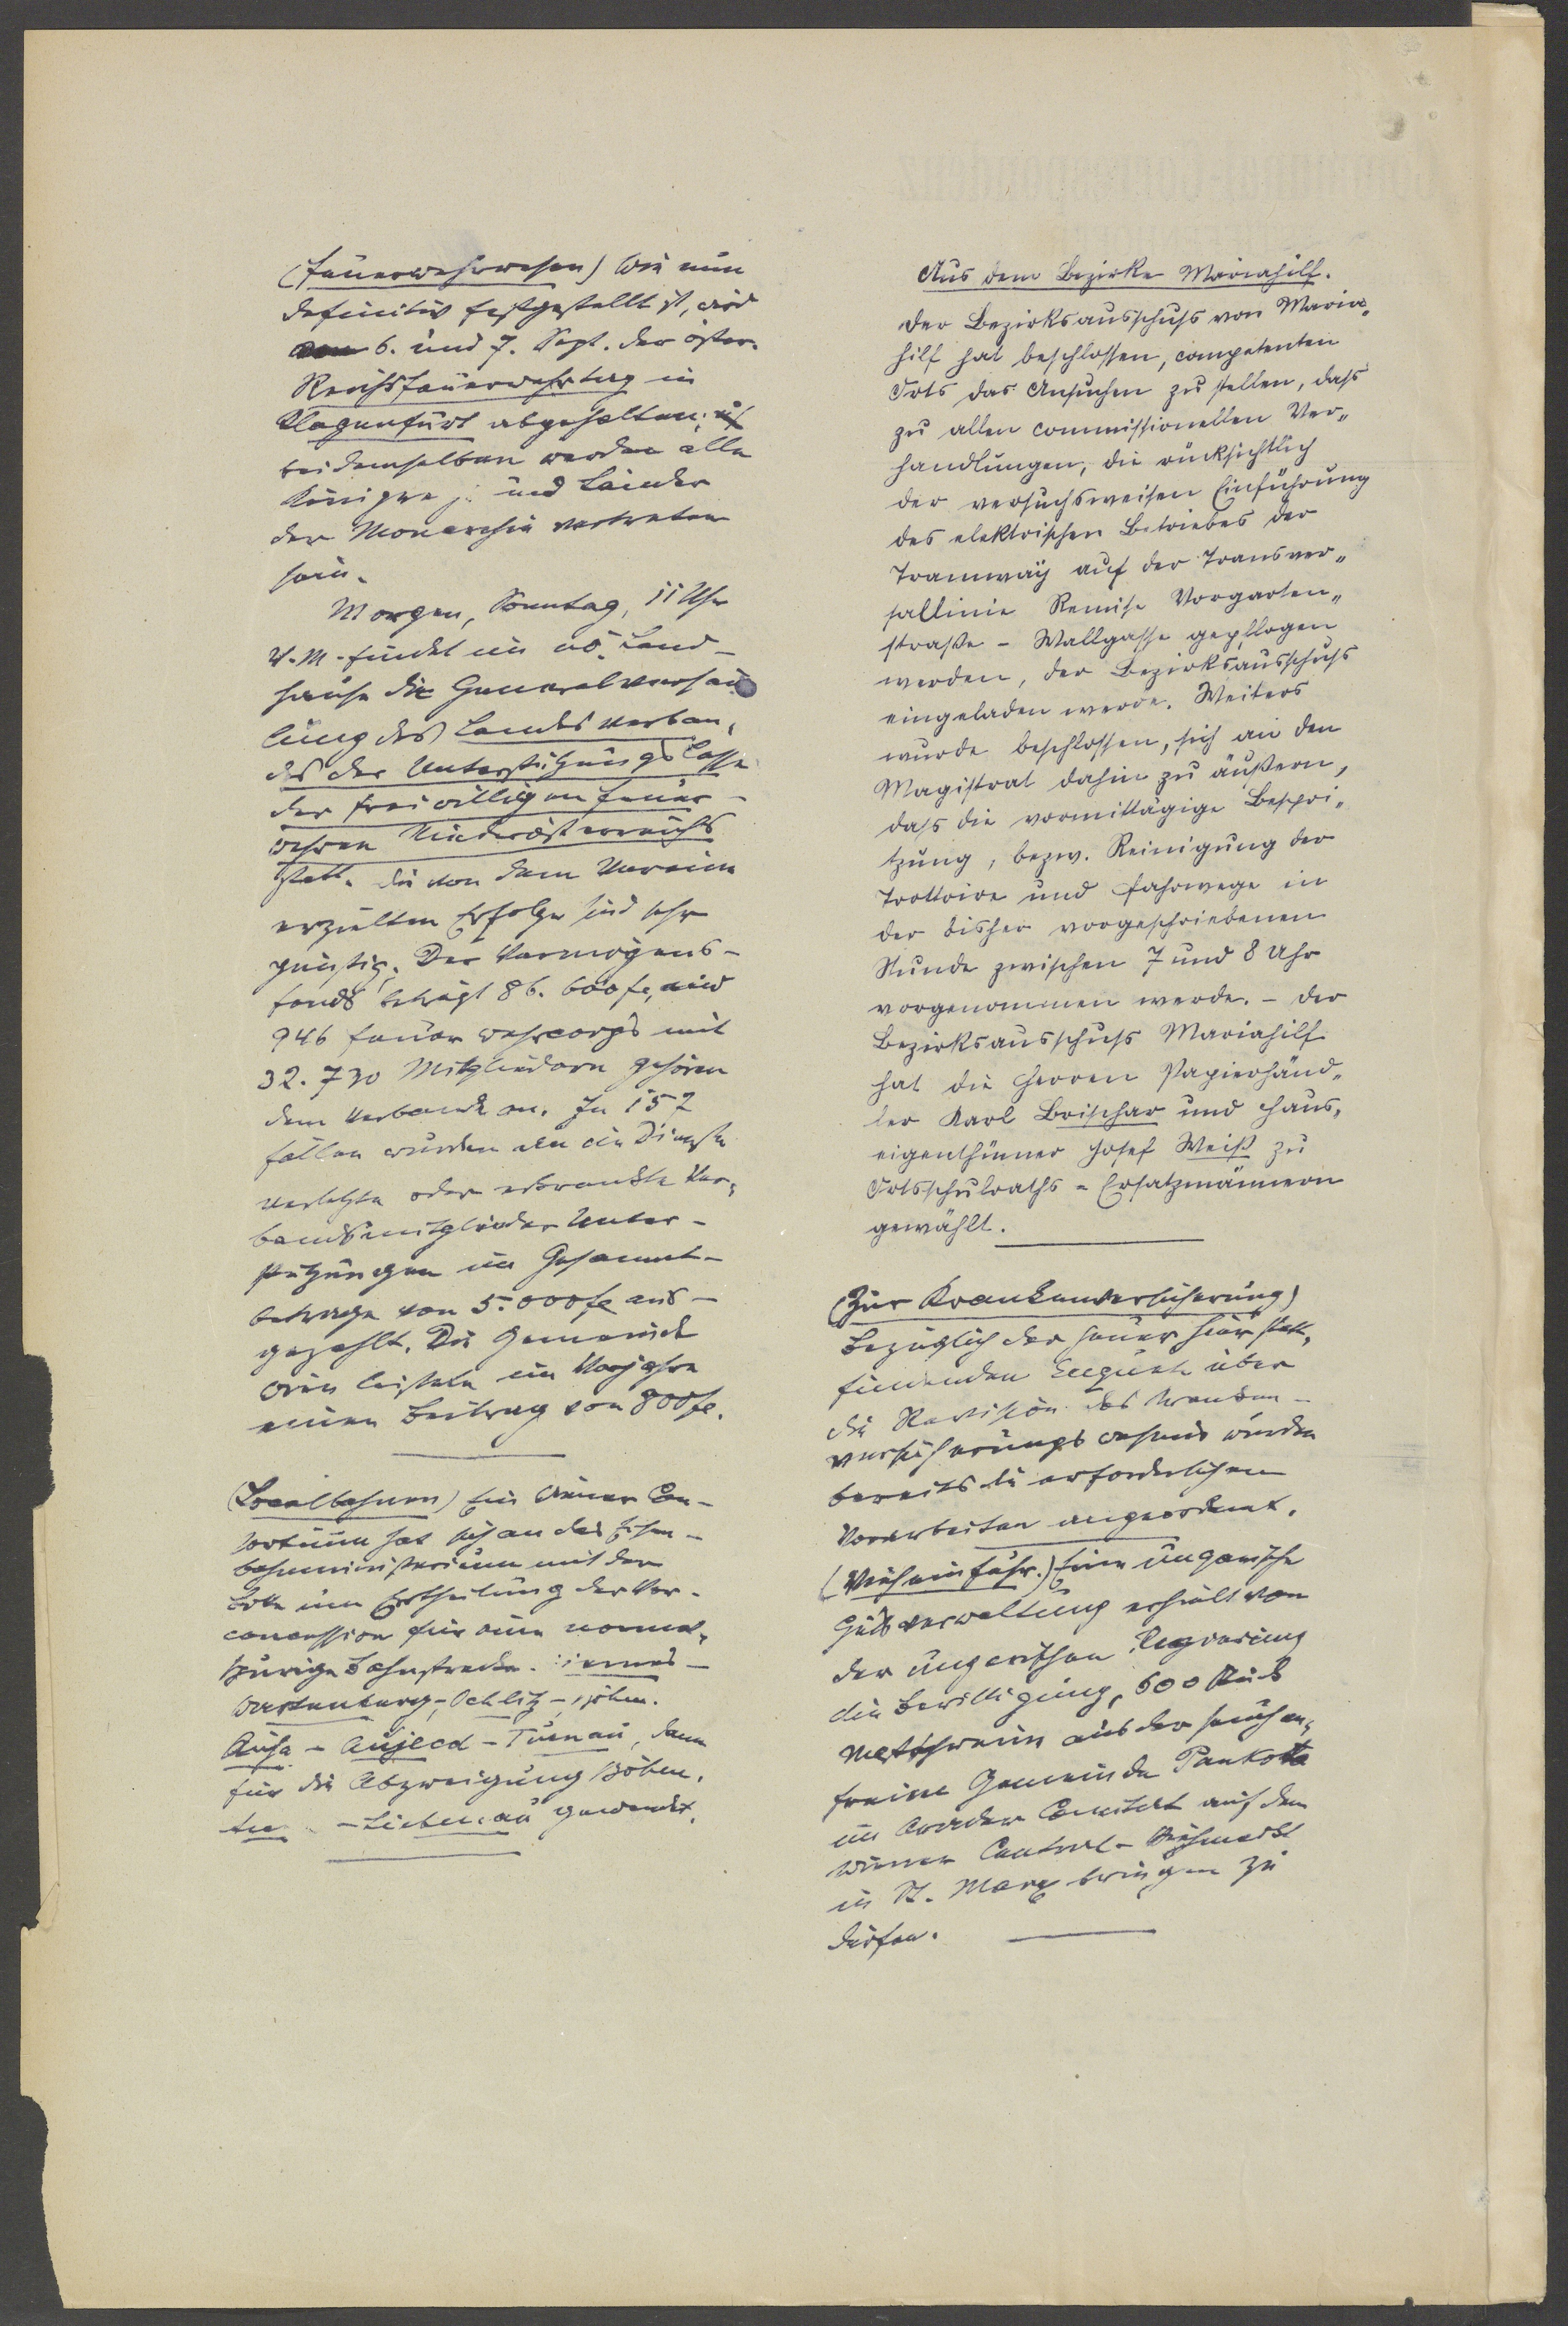 (Feuerwehrwesen) Wie nun
definitiv festgestellt ist, wird
am 6. und 7. Sept. der öster.
Reichsfeuerwehrtag in
Klagenfurt abgehalten;
bei demselben werden alle
Königre  und Länder
der Monarchie vertreten
sein.
Morgen, Sonntag, 11 Uhr
V.M. findet im nö. Land-
hause die Generalversam
lung des Landesverban-
des der Unterstützungscasse
der freiwilligen Feuer-
wehren Niederösterreichs
statt. Die von dem Vereine
erzielten Erfolge sind sehr
günstig. Der Vermögens-
fonds beträgt 86.600 fl, und
946 Feuerwehrcorps mit
32.730 Mitgliedern gehören
dem Verbande an. In 157
Fällen wurden an im Dienste
verletzte oder erkrankte Ver-
bandsmitglieder Unter-
stützungen im Gesammt-
betrage von 5.000 fl aus-
gezahlt. Die Gemeinde
Wien leistete im Vorjahre
einen Beitrag von 800 fl.
(Localbahnen) Ein Wiener Con-
sortium hat sich an das Eisen-
bahnministerium mit der
Bitte um Ertheilung der Vor-
concession für eine normal-
spurige Bahnstrecke
Wartenberg-Oschitz-Böhm.
Aicha - Aujezd - Turnau, dann
für die Abzweigung
- Liebenau gewendet.
Aus dem Bezirke Mariahilf.
Der Bezirksausschuss von Maria-
hilf hat beschlossen, competenten
Orts das Ansuchen zu stellen, dass
zu allen commissionellen Ver-
handlungen, die rücksichtlich
der versuchsweisen Einführung
des elektrischen Betriebes der
Tramway auf der Transver-
sallinie Remise Vorgarten-
straße - Wallgasse gepflogen
werden, der Bezirksausschuss
eingeladen werde. Weiters
wurde beschlossen, sich an den
Magistrat dahin zu äußern,
dass die vormittägige Bespri-
tzung, bezw. Reinigung der
Trottoire und Fahrwege in
der bisher vorgeschriebenen
Stunde zwischen 7 und 8 Uhr
vorgenommen werde. - Der
Bezirksausschuss Mariahilf
hat die Herren Papierhänd-
ler Karl Brischar und Haus-
eigenthümer Josef Weiß zu
Ortsschulraths-Ersatzmännern
gewählt.
(Zur Krankenversicherung)
Bezüglich der heuer hier statt-
findenden Enquete über
die Revision des Kranken-
versicherungswesens wurden
bereits die erforderlichen
Vorarbeiten angeordnet.
(Vieheinfuhr.) Eine ungarische
Gutsverwaltung erhielt von
der ungarischen Regierung
die Bewilligung, 600 Stück
Mastschweine aus der seuchen-
freien Gemeinde Pankota
im Arader Comitat auf den
Wiener Central-Viehmarkt
in St. Marx bringen zu
dürfen.